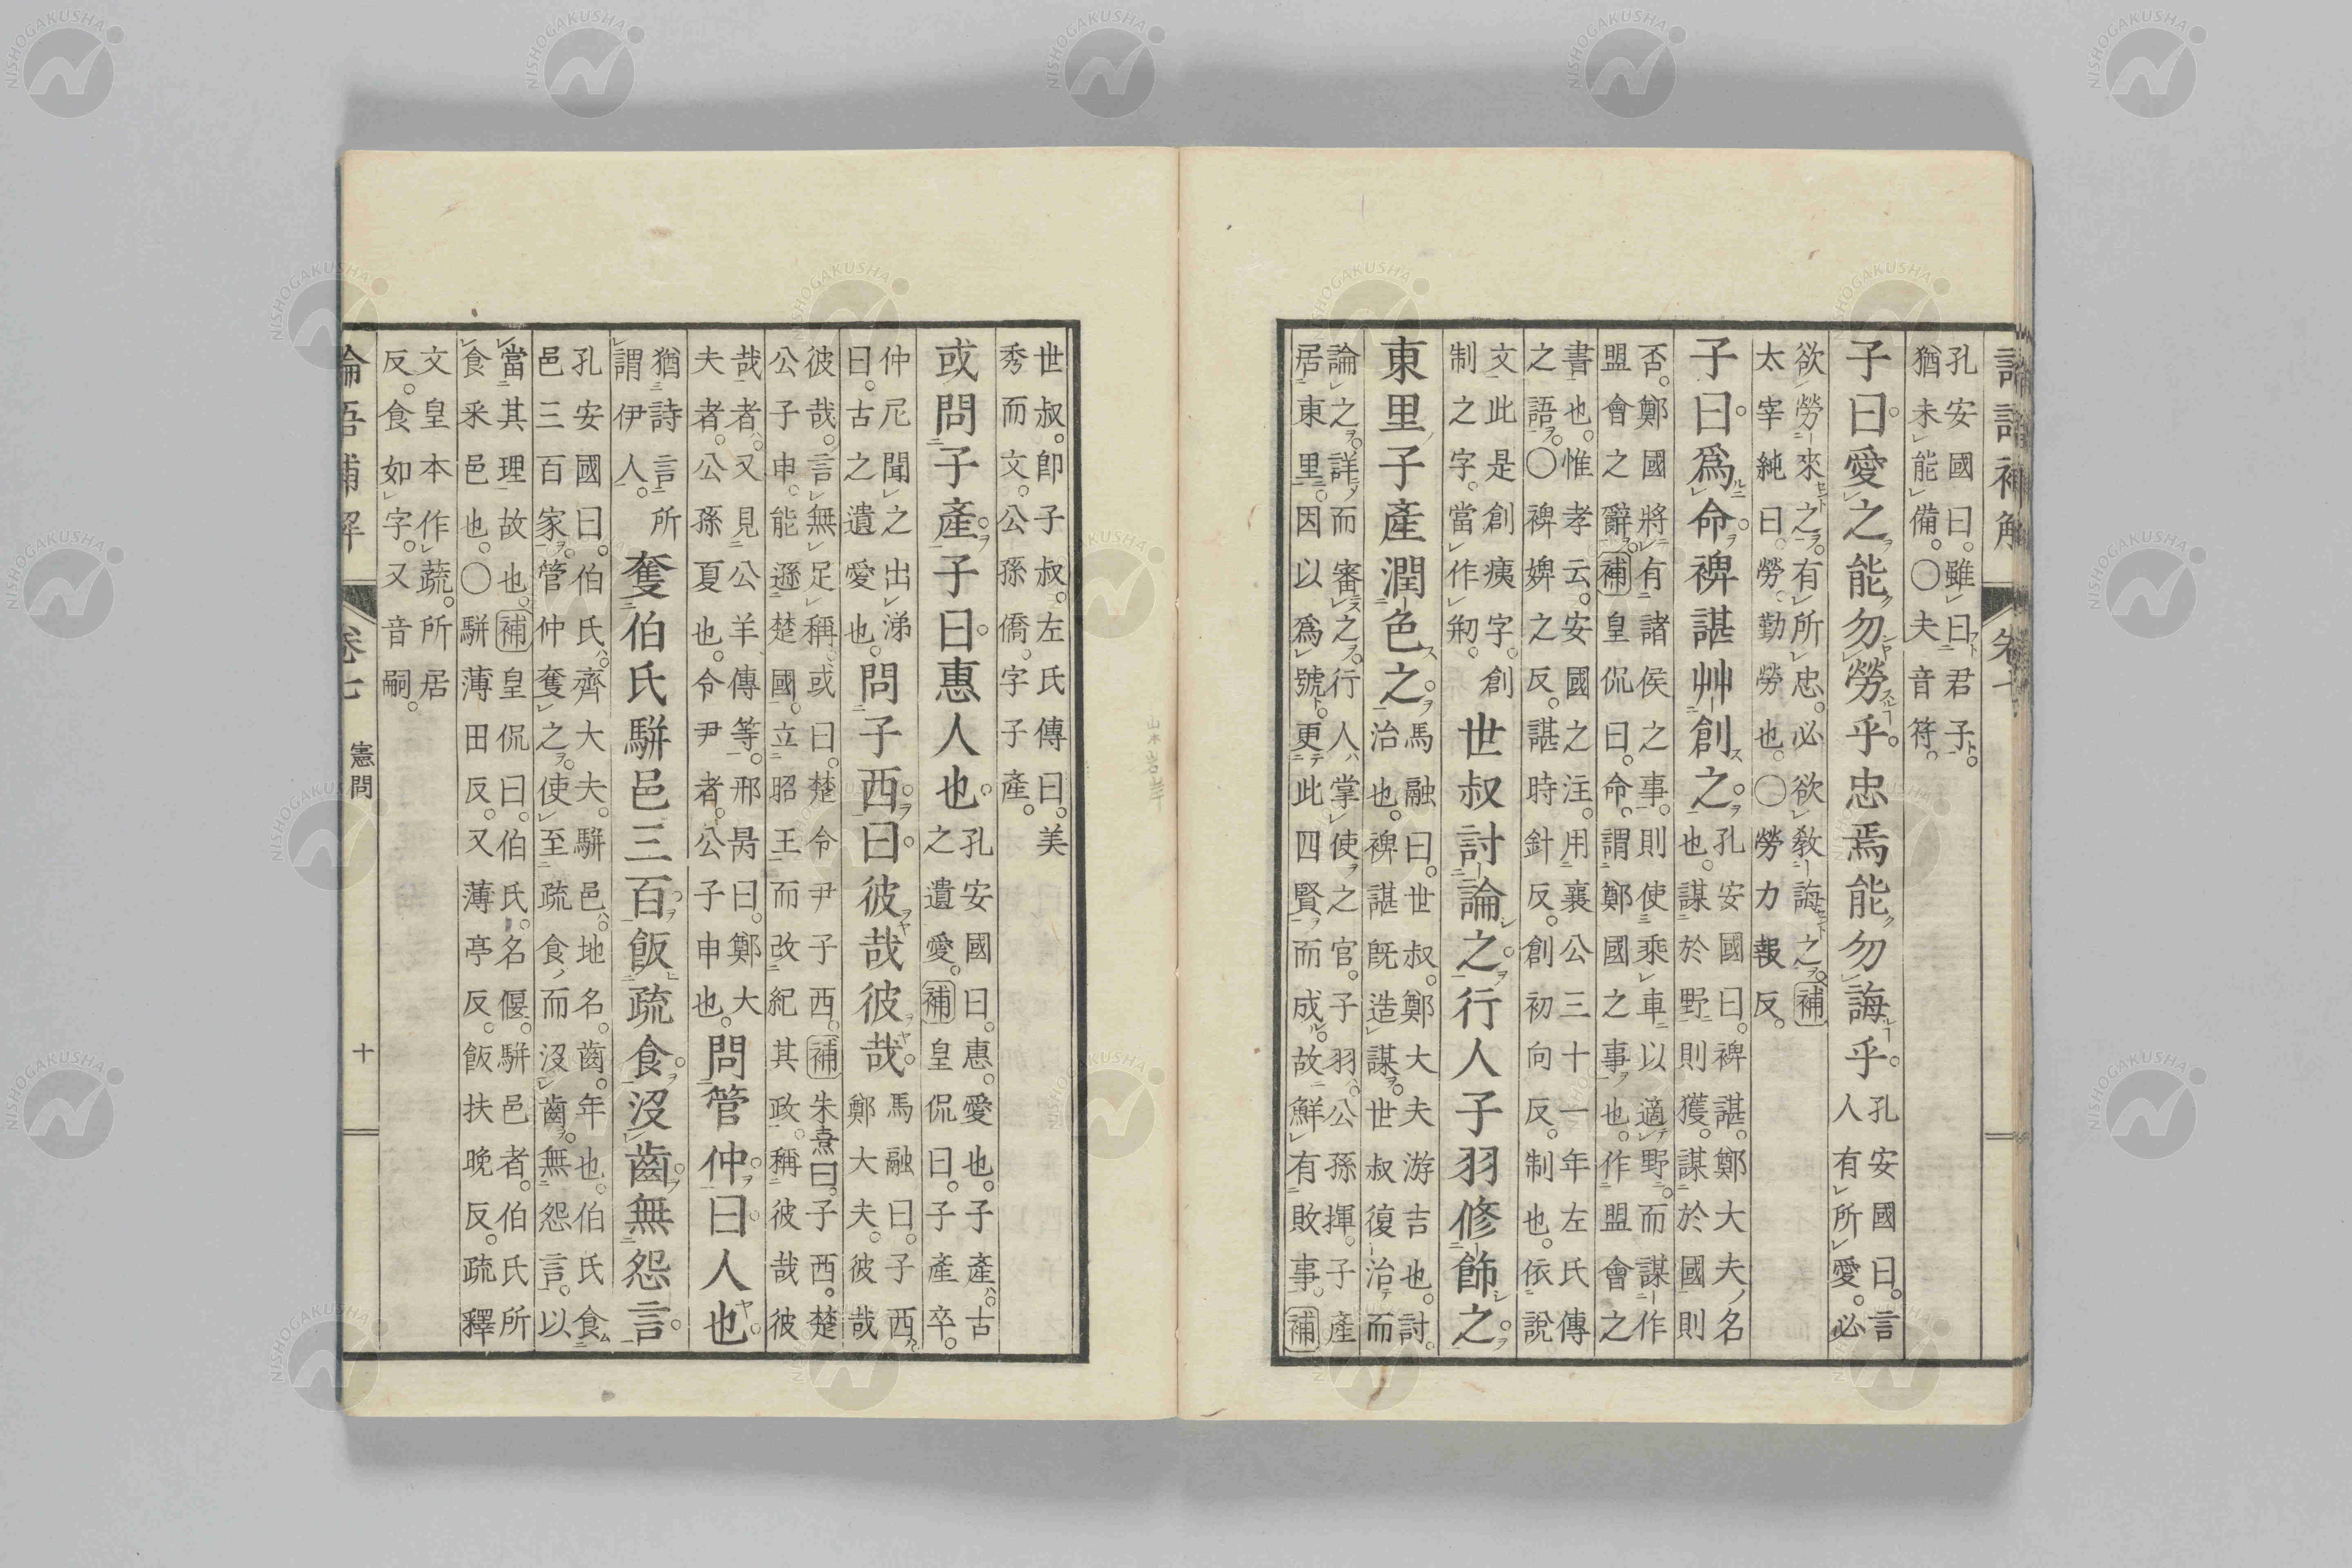 孔安國曰。雖曰君子。
猶未能備。〇夫音符。
子曰。愛之能勿勞乎。忠焉能勿誨乎。
孔安國曰。言
人有所愛。必
欲勞來之。有所忠。必欲敎誨之。補
太宰純曰。勞。勤勞也。〇勞力報反。
子曰。爲命。裨諶艸創之。
孔安國曰。裨諶。鄭大夫名
也。謀於野則獲。謀於國則
否。鄭國將有諸侯之事。則使乘車以適野。而謀作
盟會之辭。補皇侃曰。命。謂鄭國之事也。作盟會之
書也。惟孝云。安國之注。用襄公三十一年左氏傳
之語。〇裨婢之反。諶時針反。創初向反。制也。依說
文。此是創痍字。創
制之字。當作刱。
世叔討論之。行人子羽修飾之。
東里子產潤色之。
馬融曰。世叔。鄭大夫游吉也。討。
治也。裨諶旣造謀。世叔復治而
論之。詳而審之。行人。掌使之官。子羽。公孫揮。子產
居東里。因以爲號。更此四賢而成。故鮮有敗事。補
世叔。卽子叔。左氏傳曰。美
秀而文。公孫僑。字子產。
或問子產。子曰。惠人也。
孔安國曰。惠。愛也。子產。古
之遺愛。補皇侃曰。子產卒。
仲尼聞之出涕
曰。古之遺愛也。
問子西。曰。彼哉彼哉。
馬融曰。子西。
鄭大夫。彼哉
彼哉。言無足稱。或曰。楚令尹子西。補朱熹曰。子西。楚
公子申。能遜楚國。立昭王。而改紀其政。稱彼哉彼
哉者。又見公羊傳等。邢昺曰。鄭大
夫者。公孫夏也。令尹者。公子申也。
問管仲。曰。人也。
猶詩言所
謂伊人。
奪伯氏駢邑三百。飯疏食。沒齒無怨言。
孔安國曰。伯氏。齊大夫。駢邑。地名。齒。年也。伯氏食
邑三百家。管仲奪之。使至疏食。而沒齒。無怨言。以
當其理故也。補皇侃曰。伯氏。名偃。駢邑者。伯氏所
食采邑也。〇駢薄田反。又薄亭反。飯扶晚反。疏釋
文皇本作蔬。所居
反。食如字。又音嗣。
論語補解 卷七 憲問 十